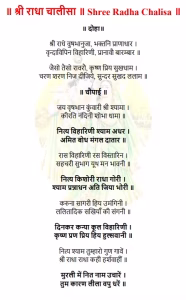 ॥ श्री राधा चालीसा ॥ Shree Radha Chalisa ॥
॥ दोहा॥
श्री राधे वुषभानुजा, भक्तनि प्राणाधार ।
वृन्दाविपिन विहारिणी, प्रानावौ बारम्बार ॥
जैसो तैसो रावरौ, कृष्ण प्रिय सुखधाम ।
चरण शरण निज दीजिये, सुन्दर सुखद ललाम ॥
॥ चौपाई ॥
जय वृषभान कुंवारी श्री श्यामा ।
कीरति नंदिनी शोभा धामा ॥
नित्य विहारिणी श्याम अधर ।
अमित बोध मंगल दातार ॥
रास विहारिणी रस विस्तारिन ।
सहचरी सुभाग यूथ मन भावनी ॥
नित्य किशोरी राधा गोरी ।
श्याम प्रन्नाधन अति जिया भोरी ॥
करुना सागरी हिय उमंगिनी ।
ललितादिक सखियाँ की संगनी ॥
दिनकर कन्या कूल विहारिणी ।
कृष्ण प्रण प्रिय हिय हुल्सवानी ॥
नित्य श्याम तुम्हारो गुण गावें ।
श्री राधा राधा कही हर्शवाहीं ॥
मुरली में नित नाम उचारें ।
तुम कारण लीला वपु धरें ॥